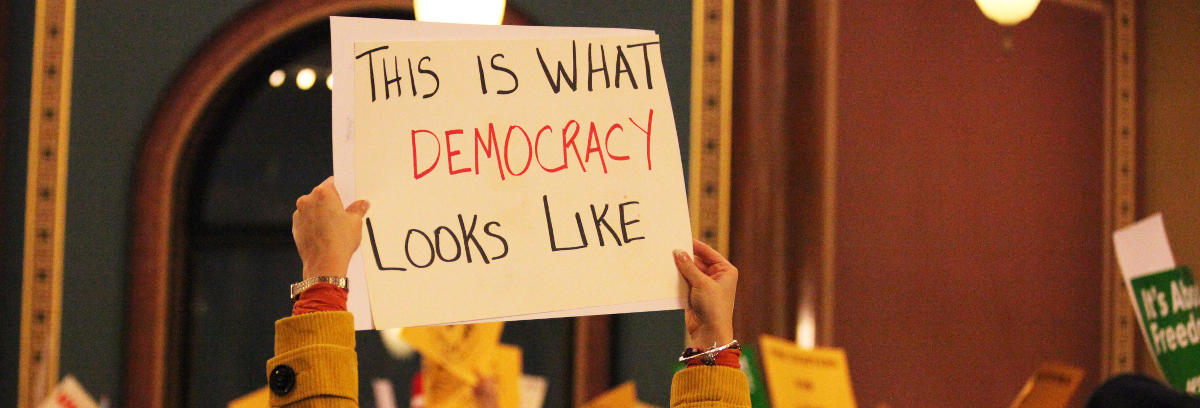 THIS IS WHAT
DEMOCRACY
LOOKS LIKE
It's